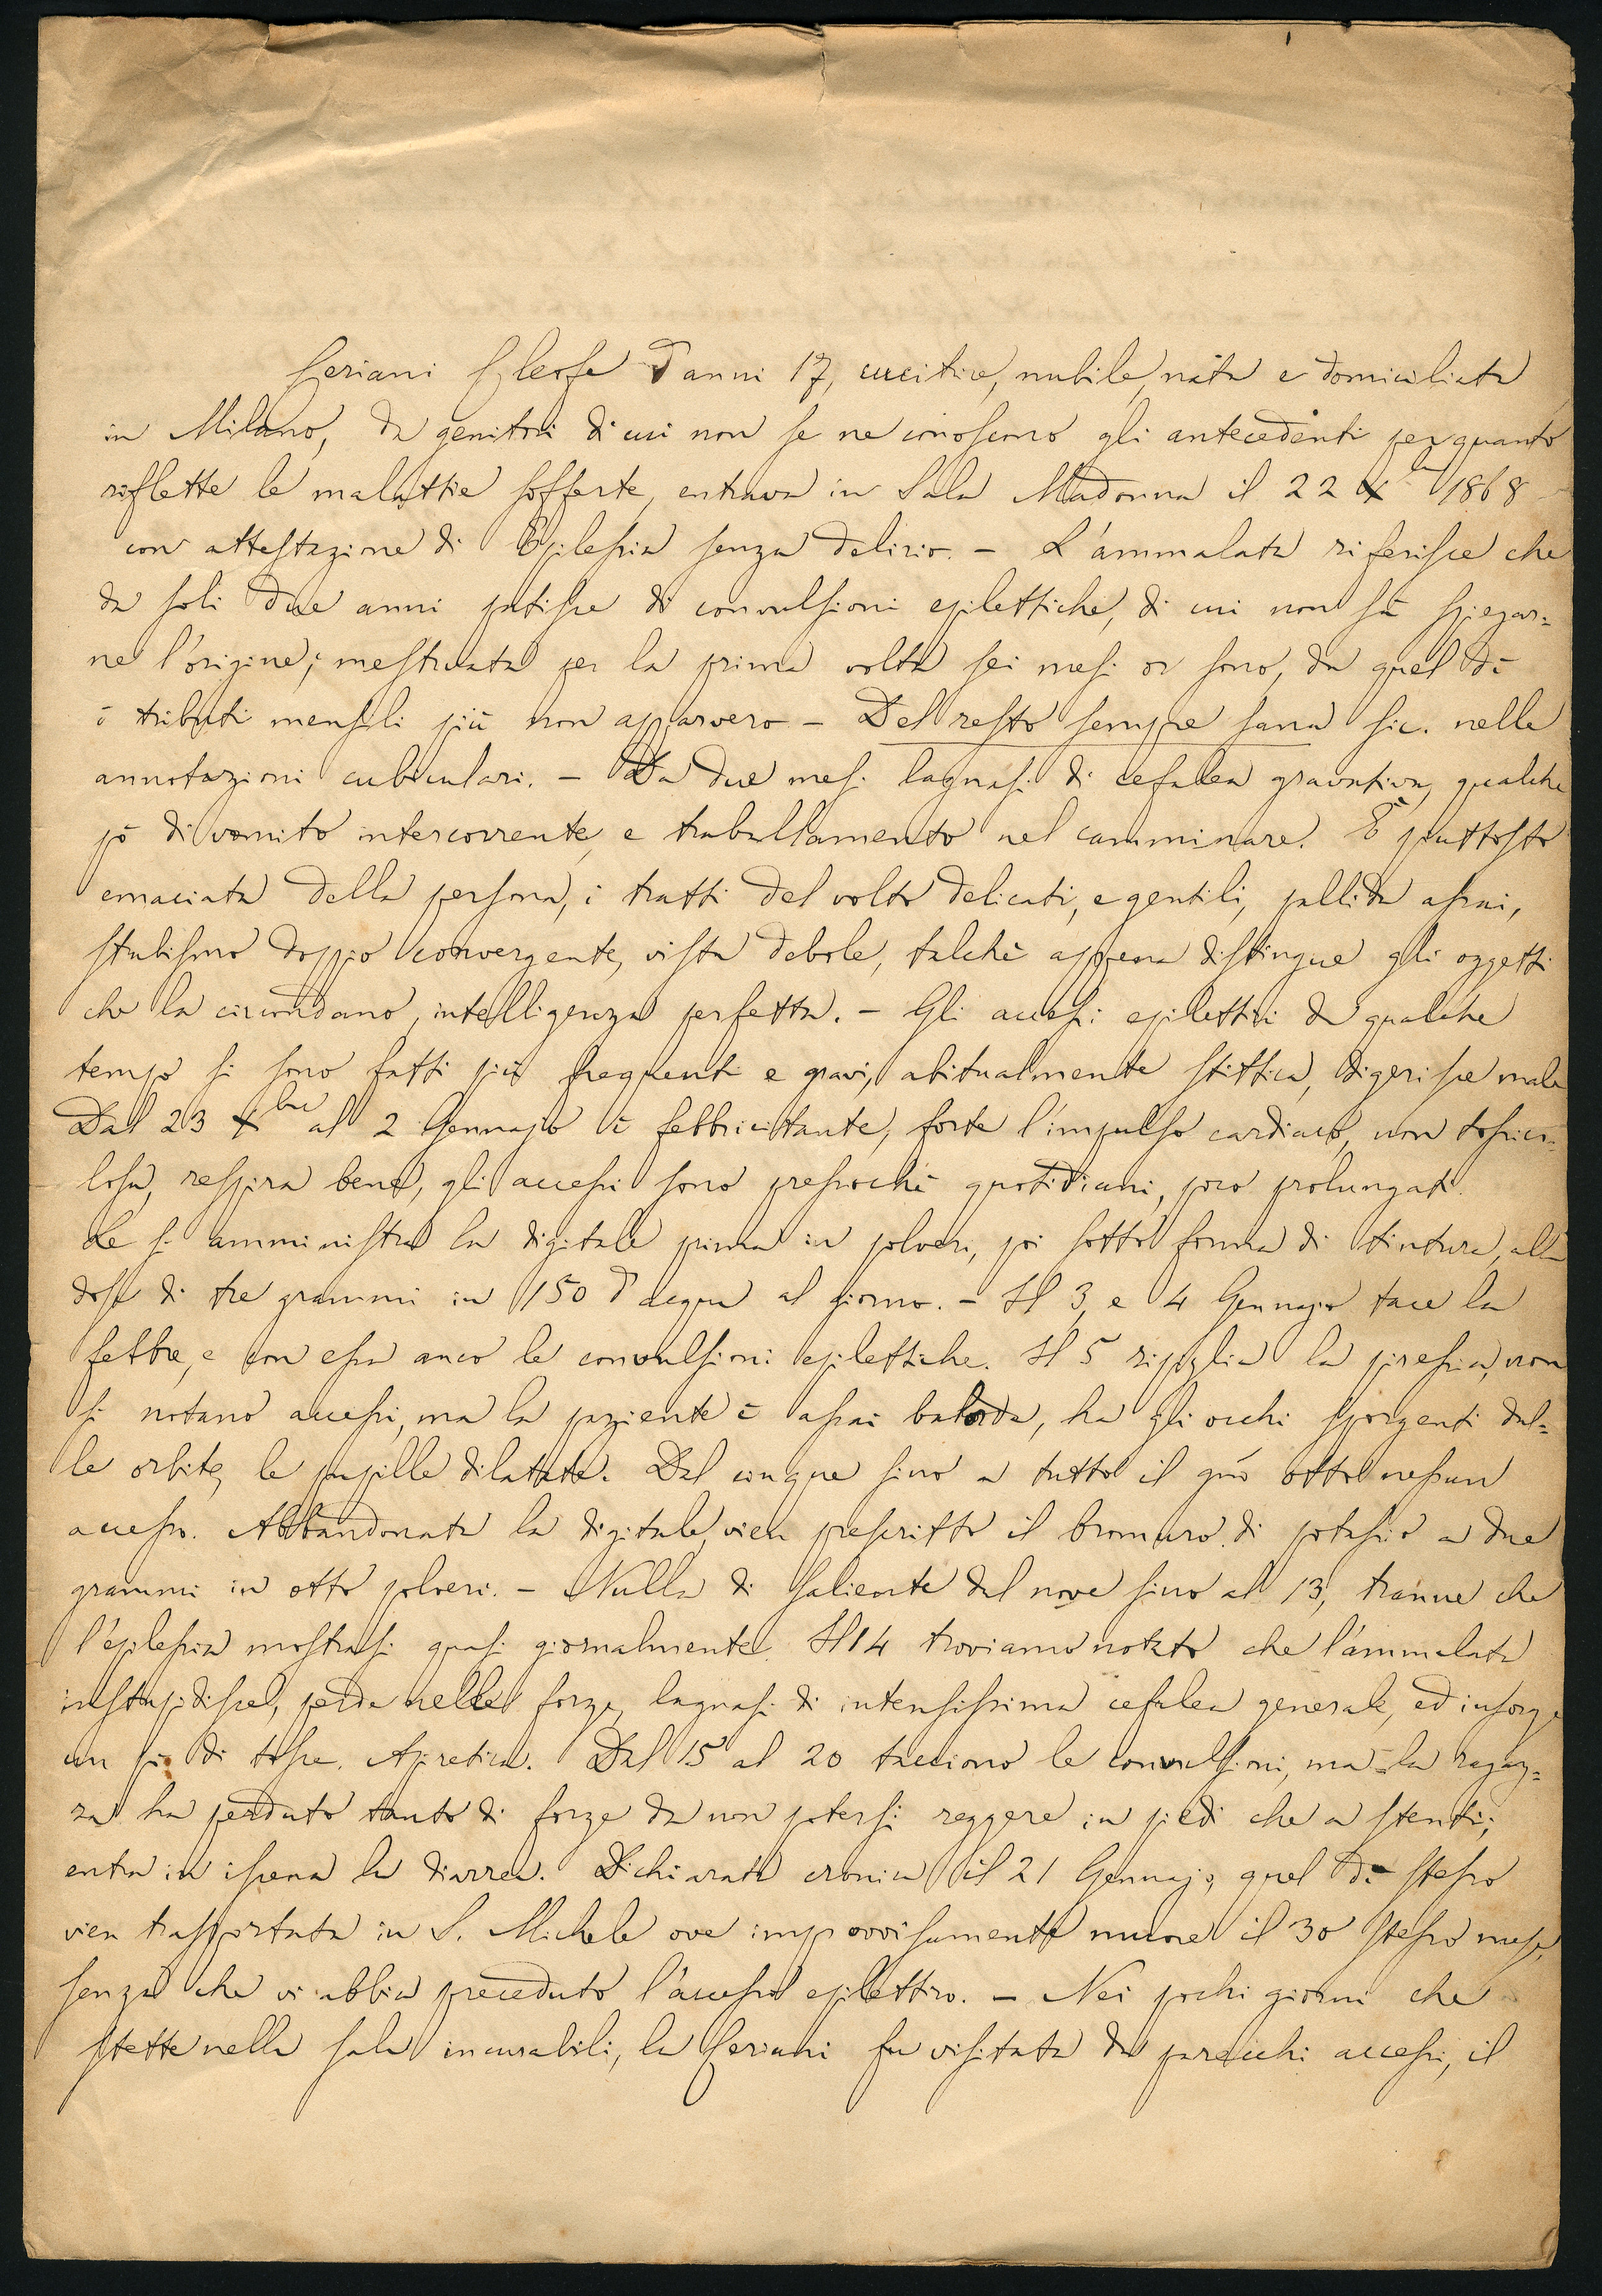 Ceriani Cleofe d'anni 17, cucitrice, nubile, nata e domiciliata
in Milano, da genitori di cui non se ne conoscono gli antecedenti per quanto
riflette le malattie sofferte, entrava in Sala Madonna il 22 X 1868
con attestazione di Epilessia senza delirio. - L'ammalata riferisce che
da soli due anni patisce di convulsioni epilettiche, di cui non sà spiegar=
ne l'origine; mestruata per la prima volta sei mesi or sono, da quel dì
i tributi mensili più non apparvero - Del resto sempre sana sic. nelle
annotazioni cubiculari. - Da due mesi lagnasi di cefalea gravativa, qualche
pò di vomito intercorrente, e traballamento nel camminare. È piuttosto
emaciata della persona, i tratti del volto delicati, e gentili, pallida assai,
strabismo doppio convergente, vista debole, talchè appena distingue gli oggetti
che la circondano, intelligenza perfetta. - Gli accessi epilettici da qualche
tempo si sono fatti più frequenti e gravi, abitualmente stittica, digerisce male
Dal 23 Xbre al 2 Gennajo è febbricitante, forte l'impulso cardiaco, non tossico=
losa, respira bene, gli accessi sono pressochè quotidiani, poco prolungati.
Le si amministra la digitale prima in polveri, poi sotto forma di tintura, alla
dose di tre grammi in 150 d'acqua al giorno. - Il 3, e 4 Gennajo tace la
febbre, e con essa anco le convulsioni epilettiche. Il 5 ripiglia la piressia, non
si notano accessi, ma la paziente è assai balorda, ha gli occhi sporgenti dal=
le orbite, le pupille dilatate. Dal cinque sino a tutto il giorno otto nessun
accesso. Abbandonata la digitale, vien prescritto il bromuro di potassio a due
grammi in otto polveri. - Nulla di saliente dal nove sino al 13, tranne che
l'epilessia mostrasi quasi giornalmente. Il 14 troviamo notato che l'ammalata
instupidisce, perde nelle forze, lagnasi di intensissima cefalea generale, ed insorge
un pò di tosse. Apiretica. Dal 15 al 20 tacciono le convulsioni, ma la ragaz=
za ha perduto tanto di forze da non potersi reggere in piedi che a stenti;
entra in iscena la diarrea. Dichiarata cronica il 21 Gennajo, quel dì stesso
vien trasportata in S. Michele ove improvvisamente muore il 30 stesso mese,
senza che vi abbia preceduto l'accesso epilettico. - Nei pochi giorni che
stette nella sala incurabili, la Ceriani fu visitata da parecchi accessi, il